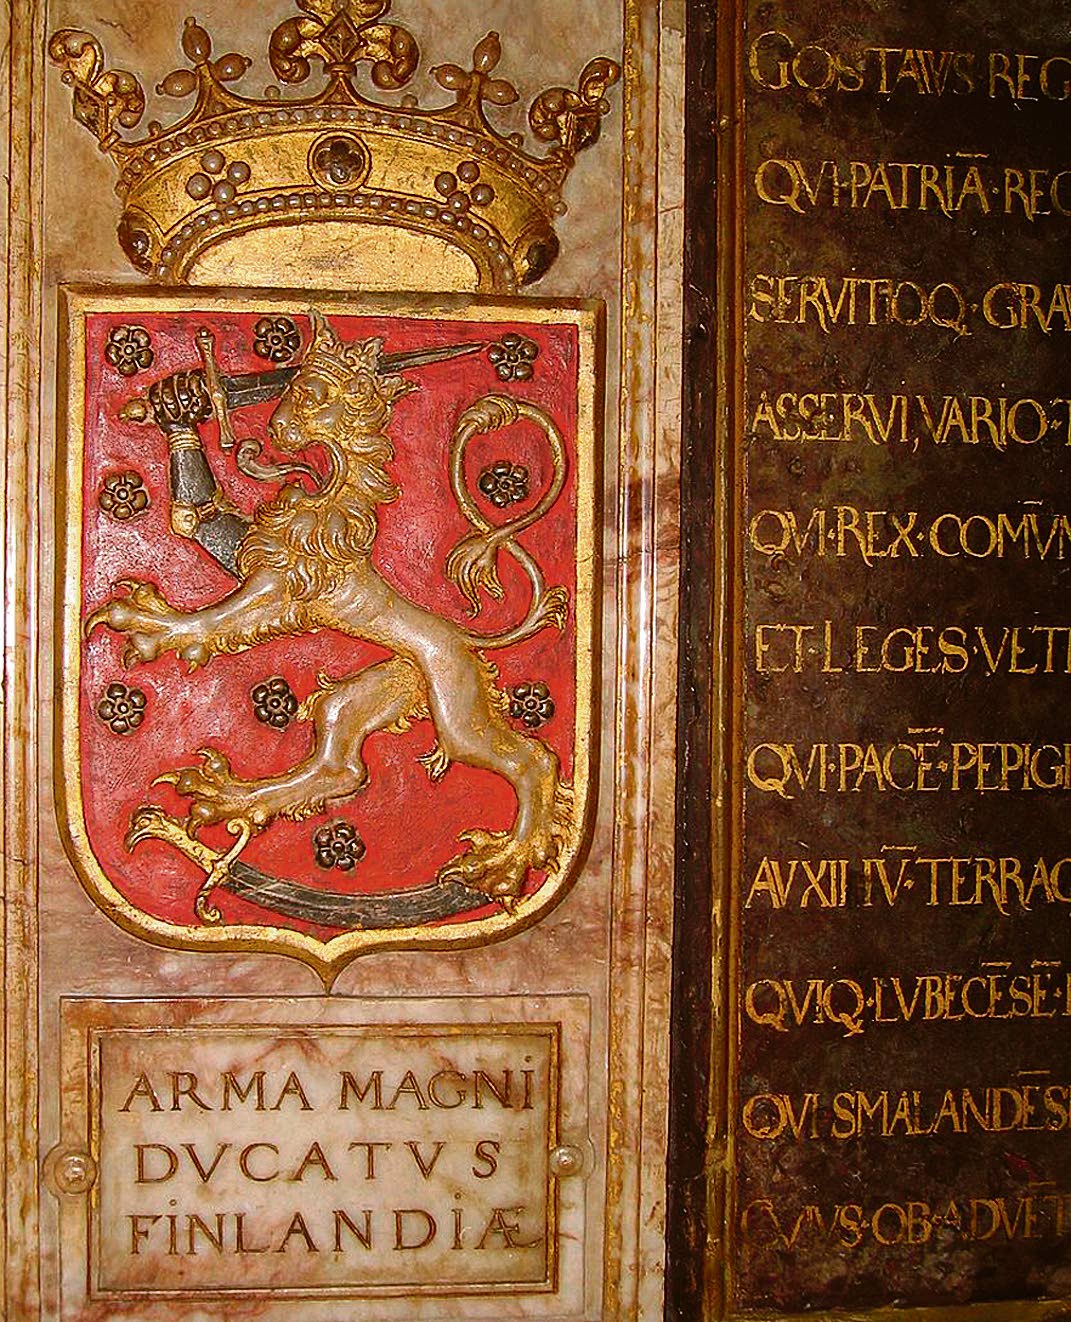 ARMA MAGNI
DVCATVS
FINLANDIÆ
GOSTAVVS REG
QVI·PATRIĀ·REG
SERVITIOQ·GRAV
ASSERVI, VARIO·
QVI·REX·COMV̄N
ET·LEGES·VETE
QVI·PACĒ·PEPIGI
AVXILIV̄·TERRAQ
QVIQ·LVBECĒSĒ·
QVI SMALANDĒS
CVIVS·OB·ADVĒT